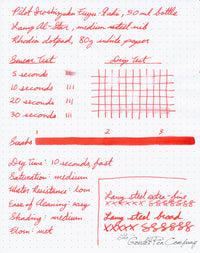 Pilot Iroshizuku Fuyu-Gaki, 50 ml bottle
Lamy Al-Star, medium steel nib
Rhodia dotpad, 80g white paper
Smear Test
Dry Test
5 seconds
10 seconds
20 seconds
30 seconds
1 2 3
Swabs
Dry Time: 10 seconds, fast
Saturation: medium
Water Resistance: low
Ease of Cleaning: easy
Shading: medium
Flow: wet
Lamy steel extra-fine
xxxxxx 8888888
Lamy steel broad
xxxxx 8888888
The Goulet Pen Company